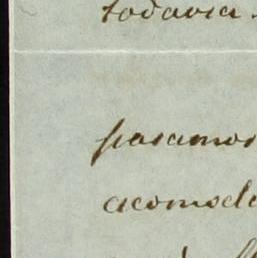 todavia.
pasamos
acomoda